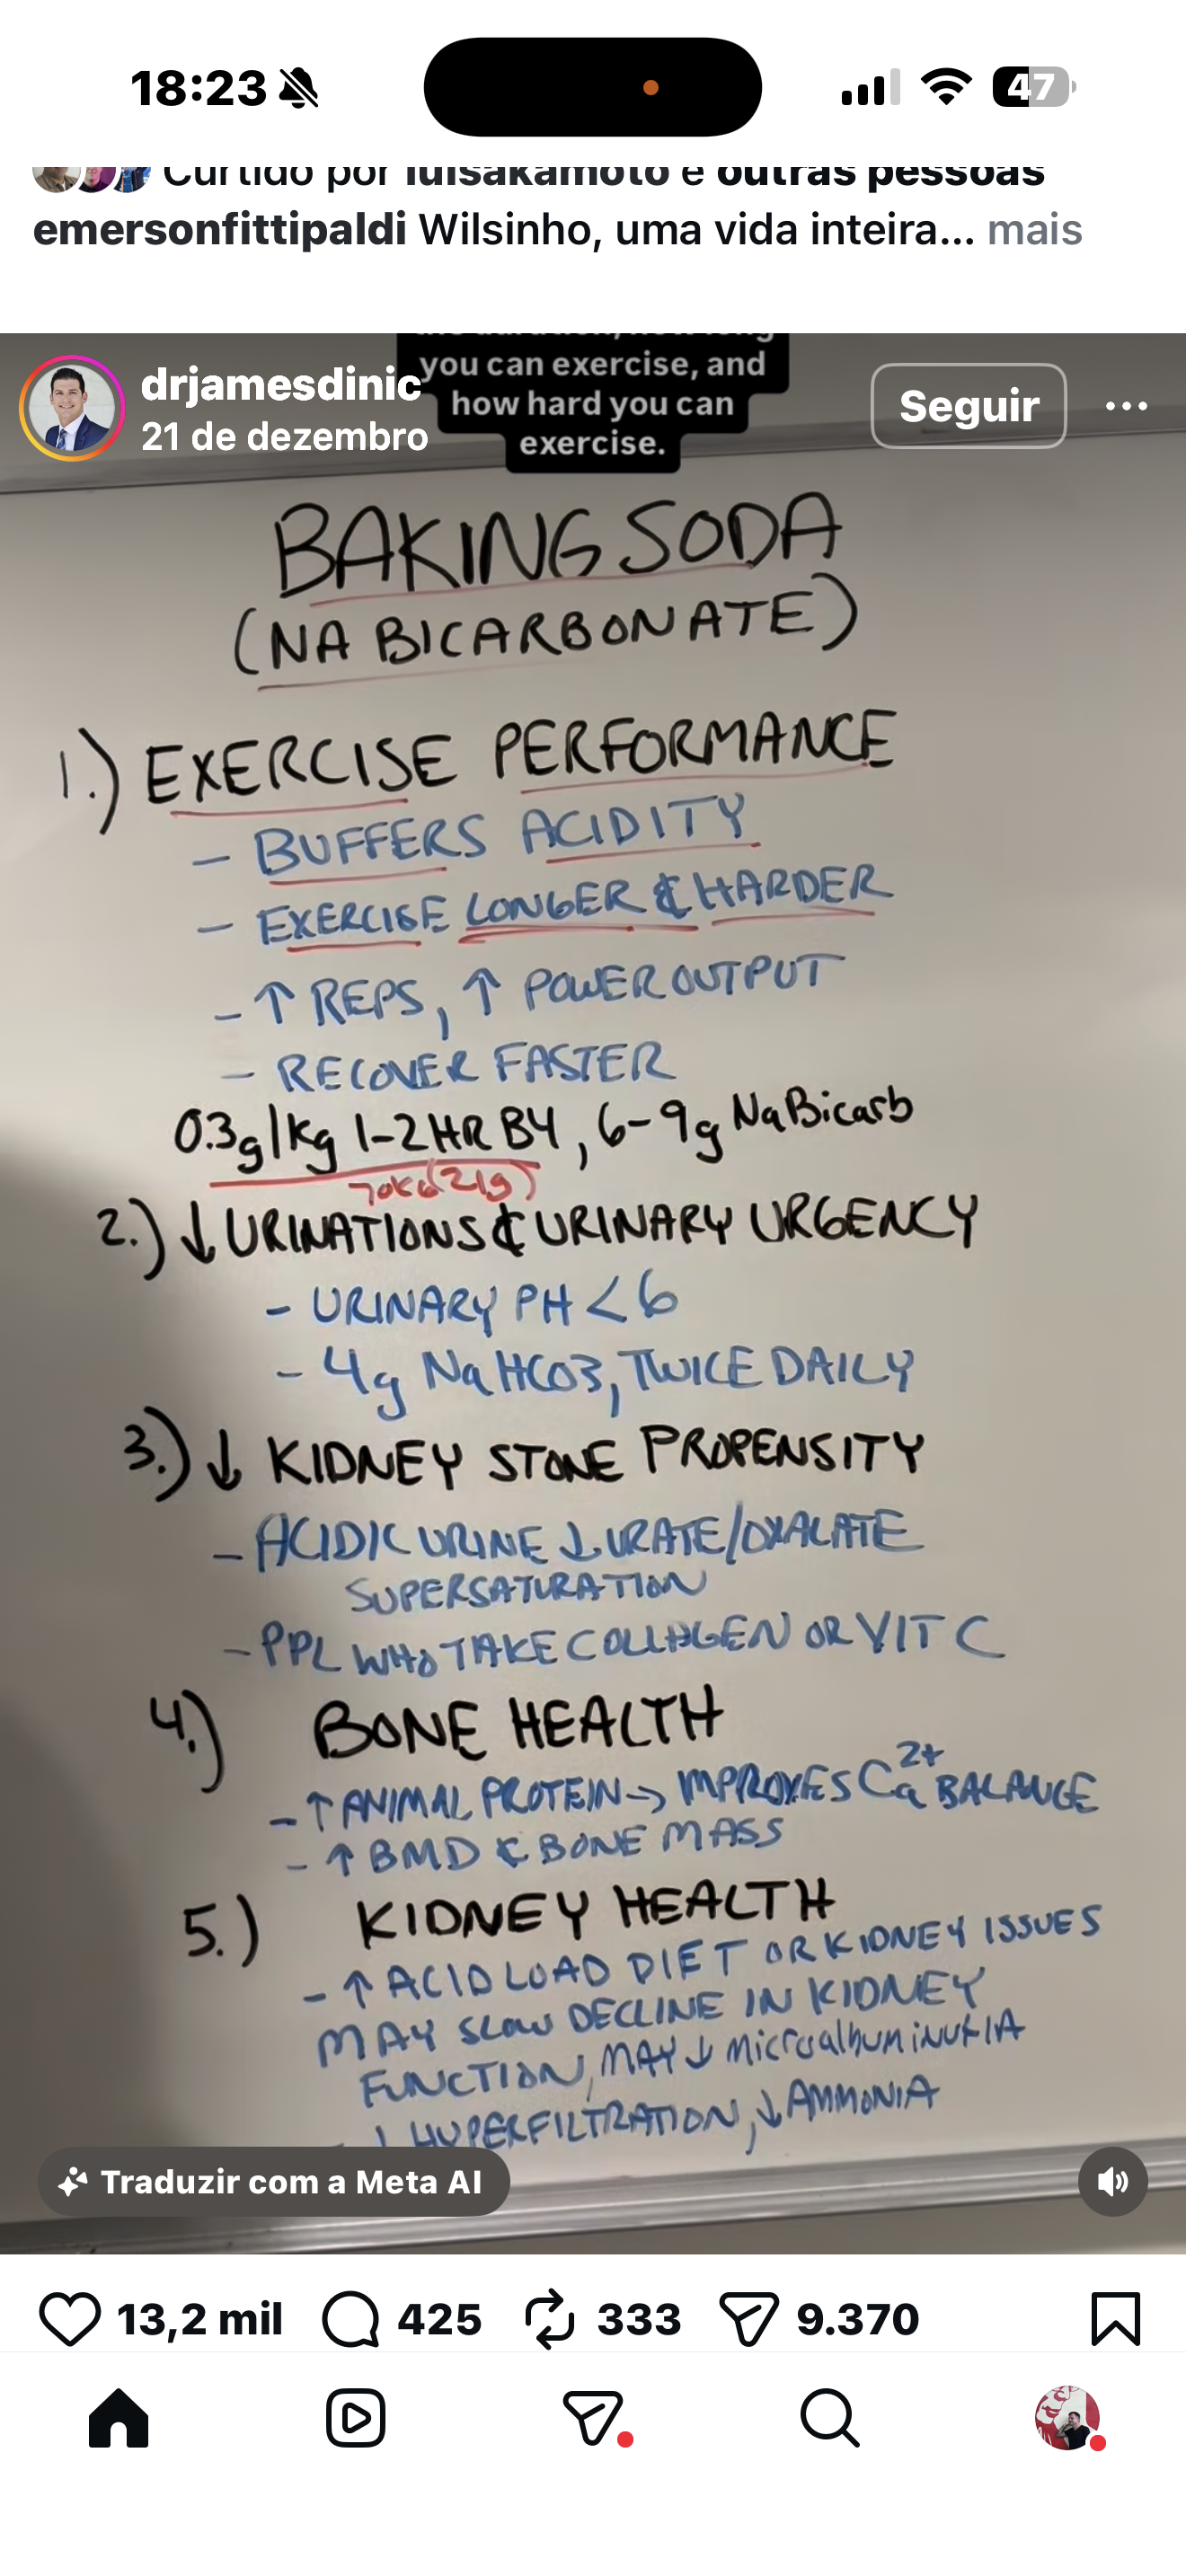 18:23
47
Curtido por luisakamoto e outras pessoas
emersonfittipaldi Wilsinho, uma vida inteira... mais
you can exercise, and
how hard you can
exercise.
drjamesdinic
21 de dezembro
Seguir
BAKING SODA
(NA BICARBONATE)
1.) EXERCISE PERFORMANCE
- BUFFERS ACIDITY
- EXERCISE LONGER & HARDER
- ↑ REPS, ↑ POWER OUTPUT
- RECOVER FASTER
0.3g/kg 1-2 HR B4, 6-9g Na Bicarb
70KG (21g)
2.) ↓ URINATIONS & URINARY URGENCY
- URINARY PH < 6
- 4g NaHCO3, TWICE DAILY
3.) ↓ KIDNEY STONE PROPENSITY
- ACIDIC URINE ↓ URATE/OXALATE
SUPERSATURATION
- PPL WHO TAKE COLLAGEN OR VIT C
4.) BONE HEALTH
- ↑ ANIMAL PROTEIN → IMPROVES Ca2+ BALANCE
- ↑ BMD & BONE MASS
5.) KIDNEY HEALTH
- ↑ ACID LOAD DIET OR KIDNEY ISSUES
MAY SLOW DECLINE IN KIDNEY
FUNCTION, MAY ↓ MicroalbuminuRIA
↓ HYPERFILTRATION, ↓ AMMONIA
Traduzir com a Meta AI
13,2 mil
425
333
9.370